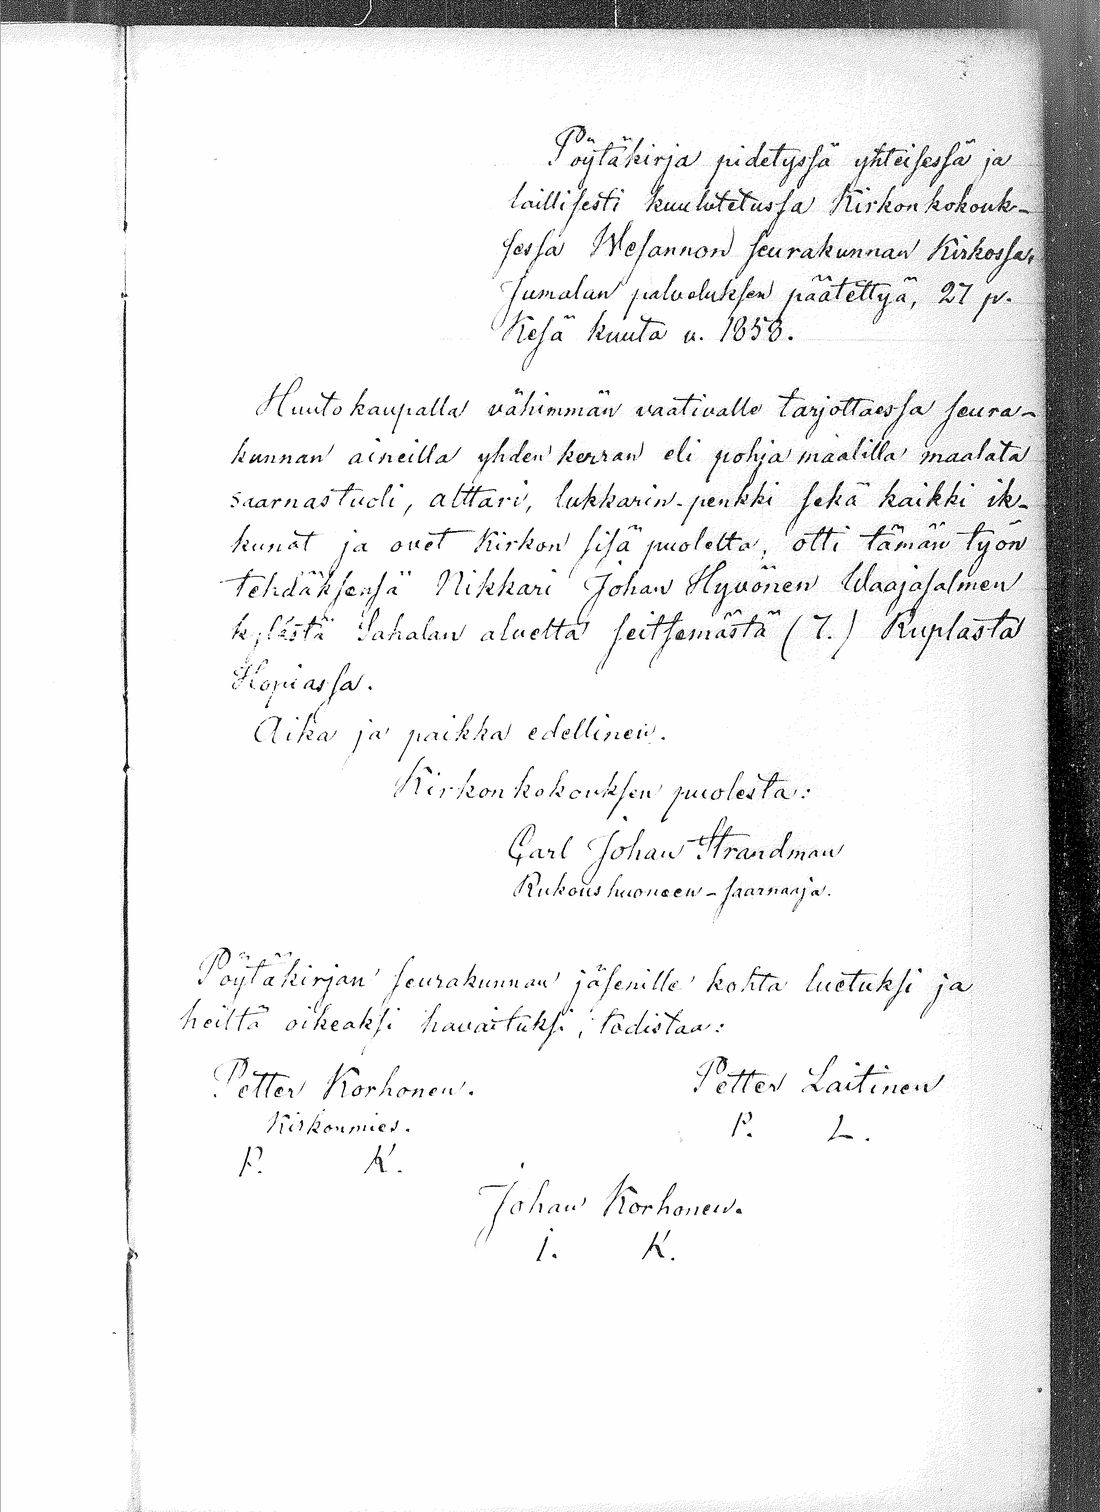 Pöytäkirja pidetyssä yhteisessä ja
laillisesti kuulutetussa Kirkonkokouk-
sessa Wesannon seurakunnan Kirkossa,
Jumalan palveluksen päätettyä, 27 p.
Kesä kuuta v. 1858.
Huutokaupalla vähimmän vaativalle tarjottaessa seura-
kunnan aineilla yhden kerran eli pohja maalilla maalata
saarnastuoli, alttari, lukkarin-penkki sekä kaikki ik-
kunat ja ovet Kirkon sisä puolelta, otti tämän työn
tehdäksensä Nikkari Johan Hyvönen Waajasalmen
kylästä Sahalan aluetta seitsemästä (7.) Ruplasta
Hopiassa.
Aika ja paikka edellinen.
Kirkonkokouksen puolesta:
Carl Johan Strandman
Rukoushuoneen-saarnaaja.
Pöytäkirjan seurakunnan jäsenille kohta luetuksi ja
heiltä oikeaksi havaituksi, todistaa:
Petter Korhonen. Petter Laitinen
Kirkonmies. P. L.
P. K.
Johan Korhonen.
I. K.